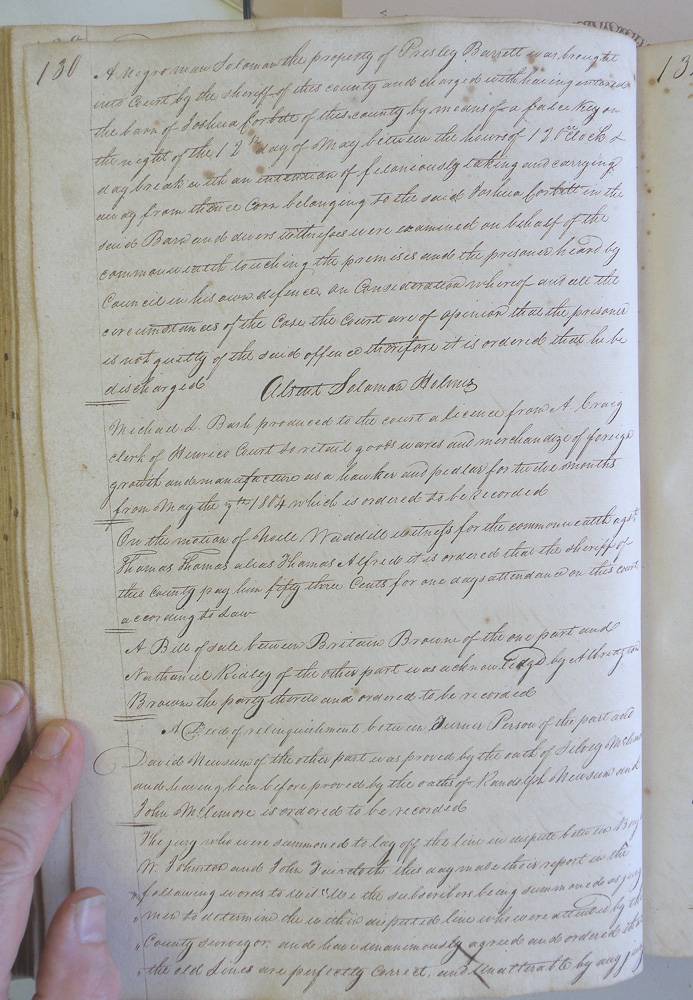 130
A negro man Solomon the property of Presley Barrett was brought
into Court by the sheriff of this county and charged with having entered
the barn of Joshua Corbitt of this county by means of a false key on
the night of the 12th day of May between the hours of 12 oClock &
day break with an intention of feloniously taking and carrying
away from thence Corn belonging to the said Joshua Corbitt in the
said Barn and divers Witnesses were examined on behalf of the
commonwealth touching the premises and the prisoner heard by
Council in his own defence, on Consideration whereof and all the
circumstances of the Case the Court are of opinion that the prisoner
is not guilty of the said offence therefore it is ordered that he be
discharged Absent Solomon Holmes
Michael L. Bash produced to the court a licence from A. Craig
clerk of Henrico Court to retail goods wares and merchandize of foreign
growth and manufacture as a hawker and pedlar for twelve months
from May the 7th 1804 which is ordered to be recorded
On the motion of Noell Waddill witness for the commonwealth agst
Thomas Thomas alias Thomas Alfred it is ordered that the sheriff of
this County pay him fifty three Cents for one days attendance on this court
according to Law
A Bill of sale between Britain Browne of the one part and
Nathaniel Ridley of the other part was acknowledged by Albridgton
Brown the party thereto and ordered to be recorded
A Deed of relinquishment between Turner Person of the part and
David Newsum of the other part was proved by the oath of
and having been before proved by the oaths of Randolph Newsum and
John McLemore is ordered to be recorded
The jury who were summoned to lay off the line in dispute between
W. Johnson and John this day made their report in the
following words to wit "We the subscribers being summoned as jury
men to determine the within disputed line who were attended by the
County surveyor, and have unanimously agreed and ordered
the old Lines are perfectly correct, and Unalterable by any jury
13